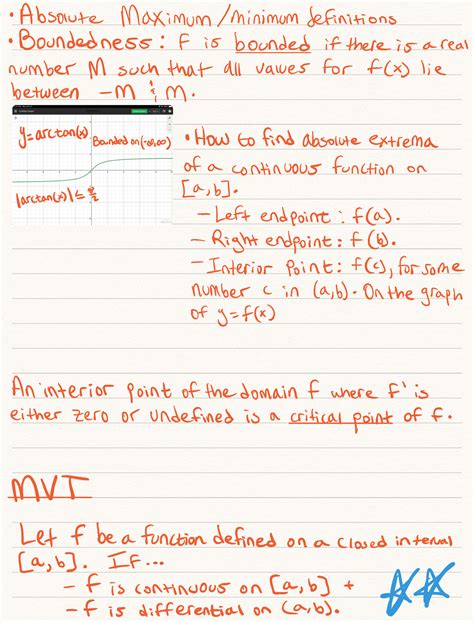 • Absolute Maximum/minimum definitions
• Boundedness: f is bounded if there is a real
number M such that all values for f(x) lie
between -M & M.
y=arctan(x)
Bounded on (-∞,∞)
|arctan(x)| ≤ π/2
• How to find absolute extrema
of a continuous function on
[a,b].
- Left endpoint: f(a).
- Right endpoint: f(b).
- Interior Point: f(c), for some
number c in (a,b). On the graph
of y=f(x)
An interior point of the domain f where f' is
either zero or undefined is a critical point of f.
MVT
Let f be a function defined on a closed interval
[a,b]. If...
- f is continuous on [a,b] +
- f is differential on (a,b).